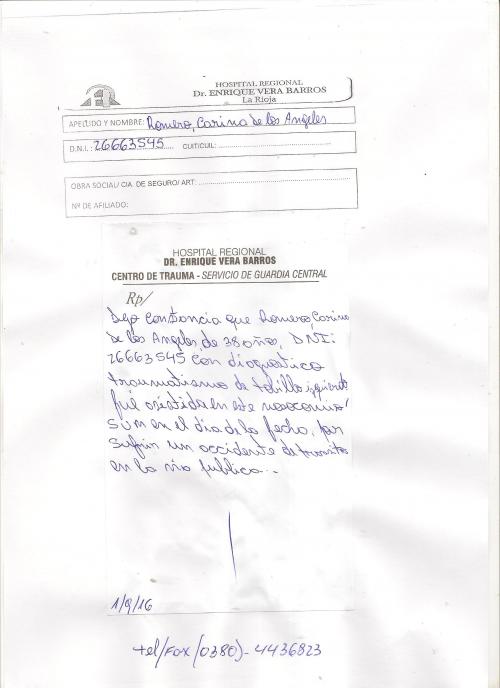 HOSPITAL REGIONAL
Dr. ENRIQUE VERA BARROS
La Rioja
APELLIDO Y NOMBRE: Romero, Carina de los Angeles
D.N.I.: 26663545 CUIT/CUIL:
OBRA SOCIAL/ CIA. DE SEGURO/ ART:
Nº DE AFILIADO:
HOSPITAL REGIONAL
DR. ENRIQUE VERA BARROS
CENTRO DE TRAUMA - SERVICIO DE GUARDIA CENTRAL
Rp/
Dejo constancia que Romero, Carina
de los Angeles, de 38 años, DNI:
26663545, con diagnostico
traumatismo de tobillo izquierdo
fue asistida en este nosocomio
en el dia de la fecha, por
sufrir un accidente de transito
en la via publica.
1/9/16
tel/Fax (0380)-4436823